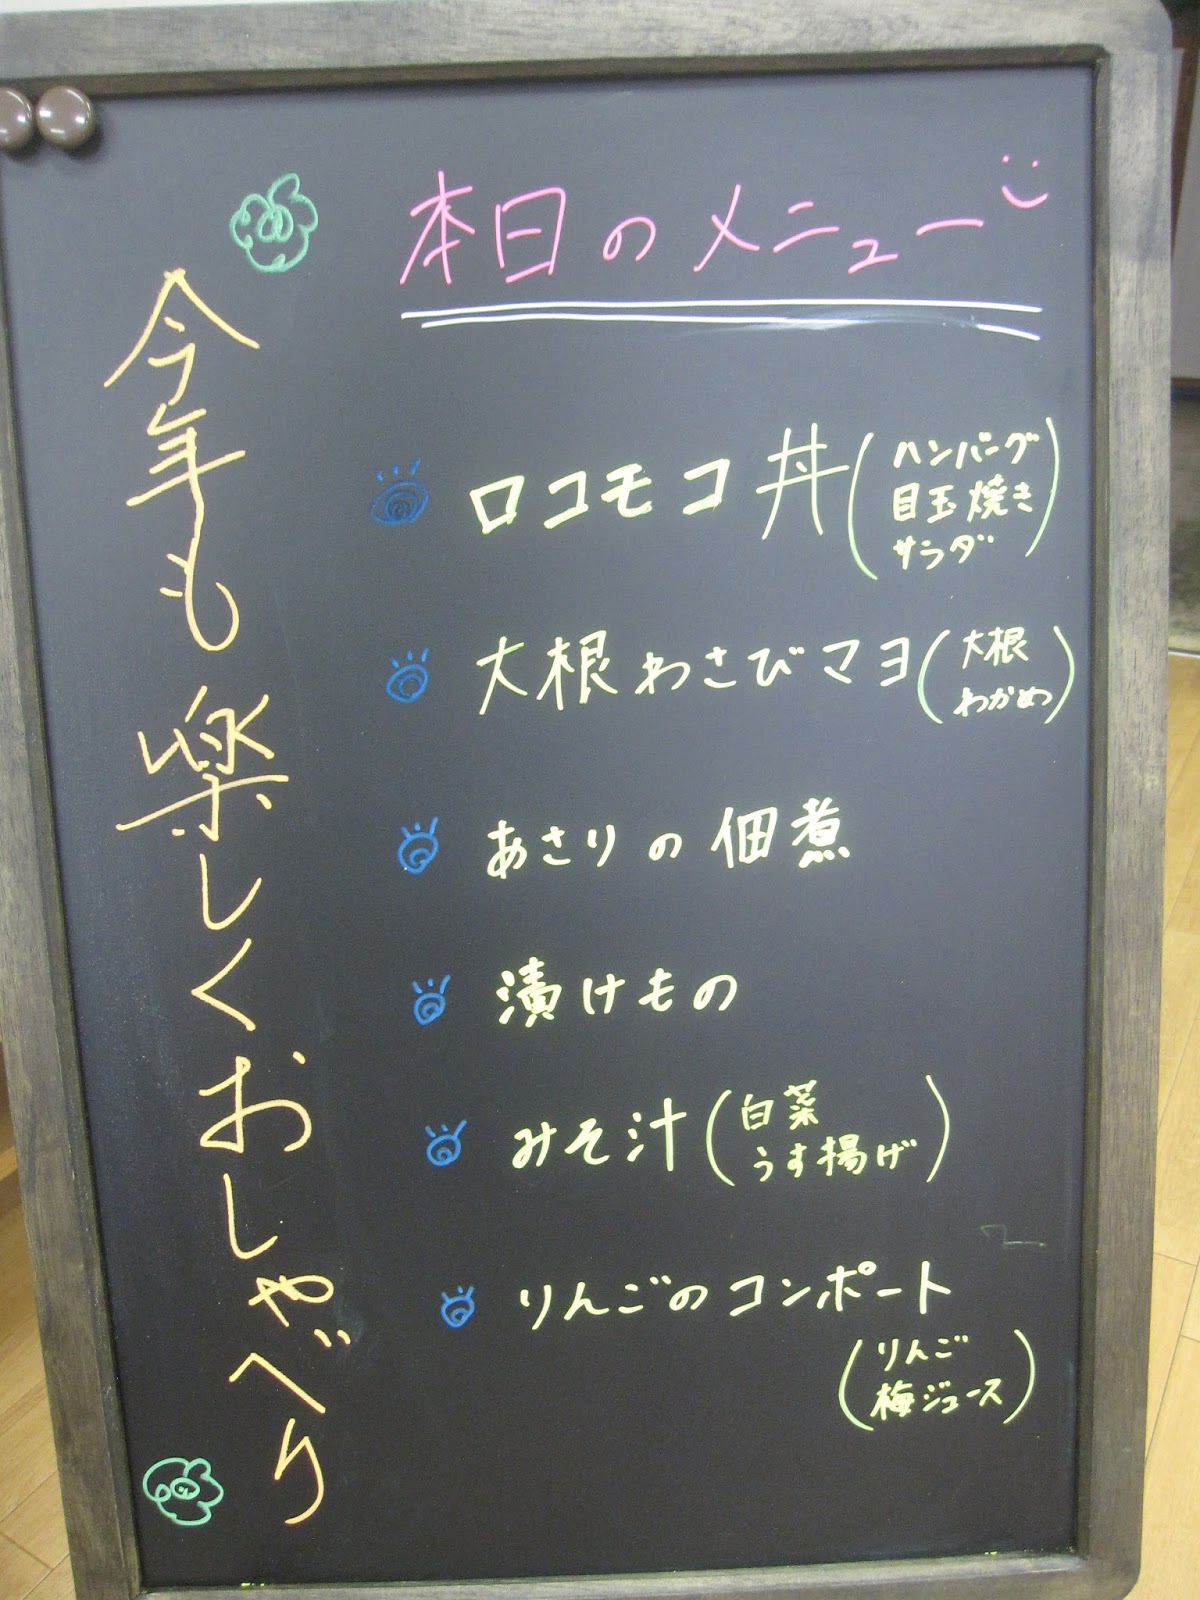 本日のメニュー
今年も楽しくおしゃべり
ロコモコ丼(ハンバーグ
目玉焼き
サラダ)
大根わさびマヨ(大根
わかめ)
あさりの佃煮
漬けもの
みそ汁(白菜
うす揚げ)
りんごのコンポート
(りんご
梅ジュース)